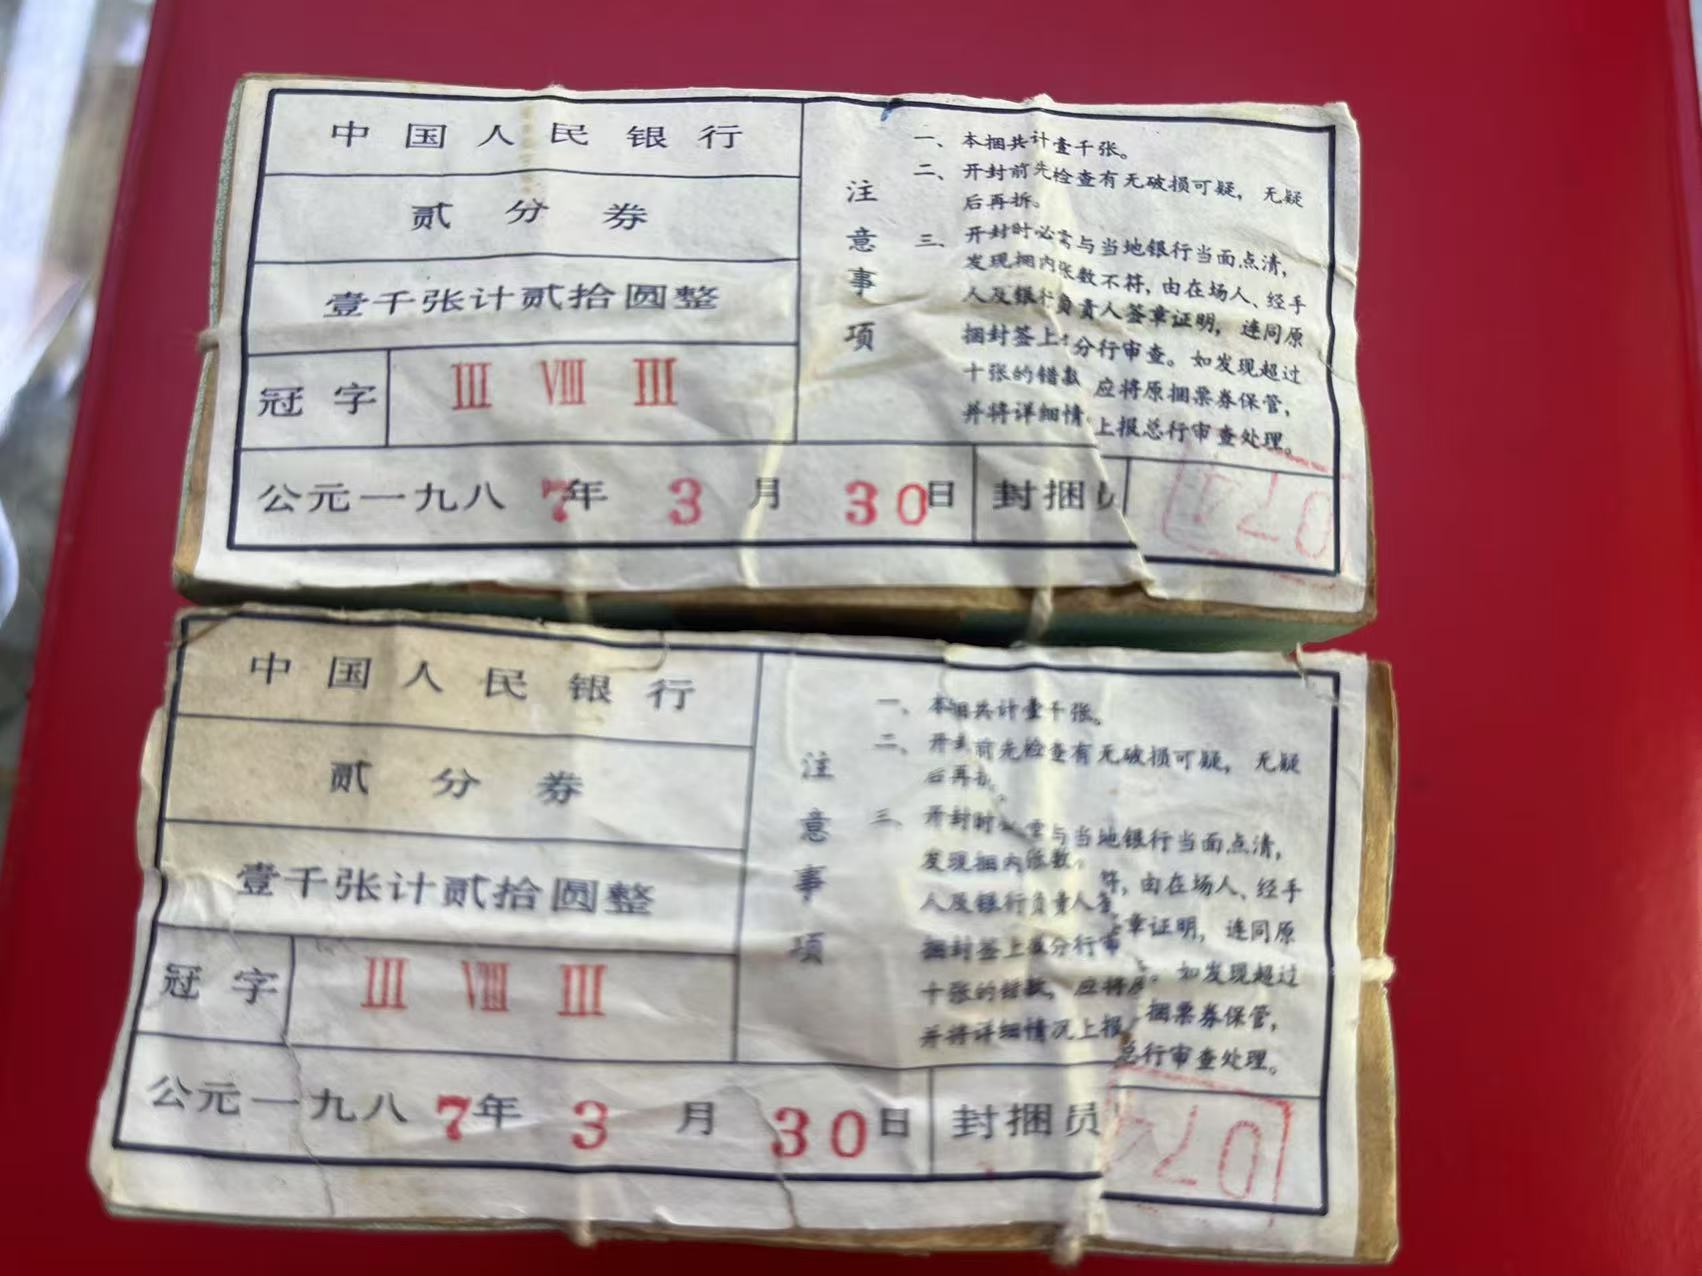 中国人民银行
贰分券
壹千张计贰拾圆整
冠字 III VIII III
公元一九八7年3月30日 封捆
注意事项
一、本捆共计壹千张。
二、开封前先检查有无破损可疑，无疑
后再拆。
三、开封时必需与当地银行当面点清，
发现捆内张数不符，由在场人、经手
人及银行负责人签章证明，连同原
捆封签上 分行审查。如发现超过
十张的错款 应将原捆票券保管，
并将详细情 上报总行审查处理。
074
中国人民银行
贰分券
壹千张计贰拾圆整
冠字 III VIII III
公元一九八7年3月30日 封捆员
注意事项
一、本捆共计壹千张。
二、开封前先检查有无破损可疑，无疑
后再
三、开封时 需与当地银行当面点清，
发现捆内张数 符，由在场人、经手
人及银行负责人签章证明，连同原
捆封签上 分行审 。如发现超过
十张的错款，应将原捆票券保管，
并将详细情况上报总行审查处理。
074